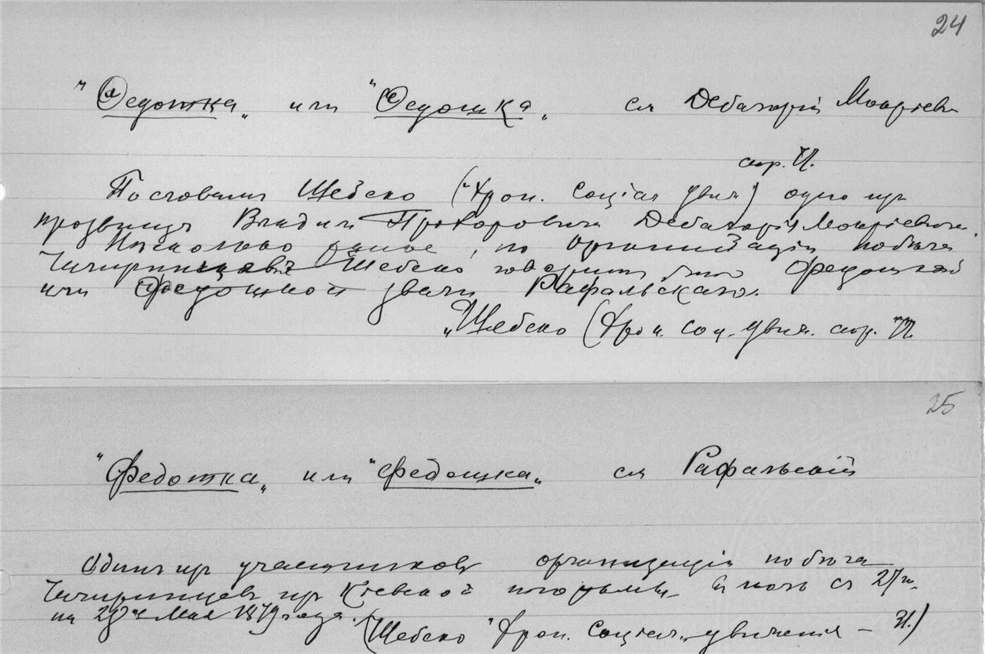 24
"Федотка" или "Федошка" см Дебагорій Мокріевич
стр.
По словамъ Шебеко (Хрон. Соціал движ) одно изъ
прозвищъ Владим Прохоровича Дебагорій Мокріевича.
Нѣсколько ранѣе, по организаціи побѣга
Чигиринцевъ Шебеко говоритъ что Федоткой
или Федошкой звали Рафальскаго.
Шебеко (Хрон. соц. движ. стр.
25
"Федотка" или "Федошка" см Рафальскій
Одинъ изъ участниковъ организаціи побѣга
Чигиринцевъ изъ Кіевской тюрьмы въ ночь съ 27го
на Мая года.
(Шебеко "Хрон. Соціал. движенія –